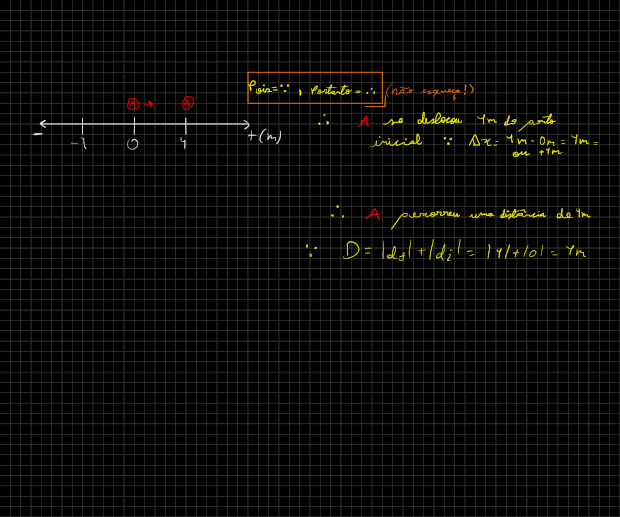 Pois = ∵ , Portanto = ∴ (não esqueça!)
A → A
- -4 0 4 + (m)
∴ A se deslocou 4m do ponto
inicial ∵ Δx = 4m - 0m = 4m =
ou +4m
∴ A percorreu uma distância de 4m
∵ D = |df| + |di| = |4| + |0| = 4m